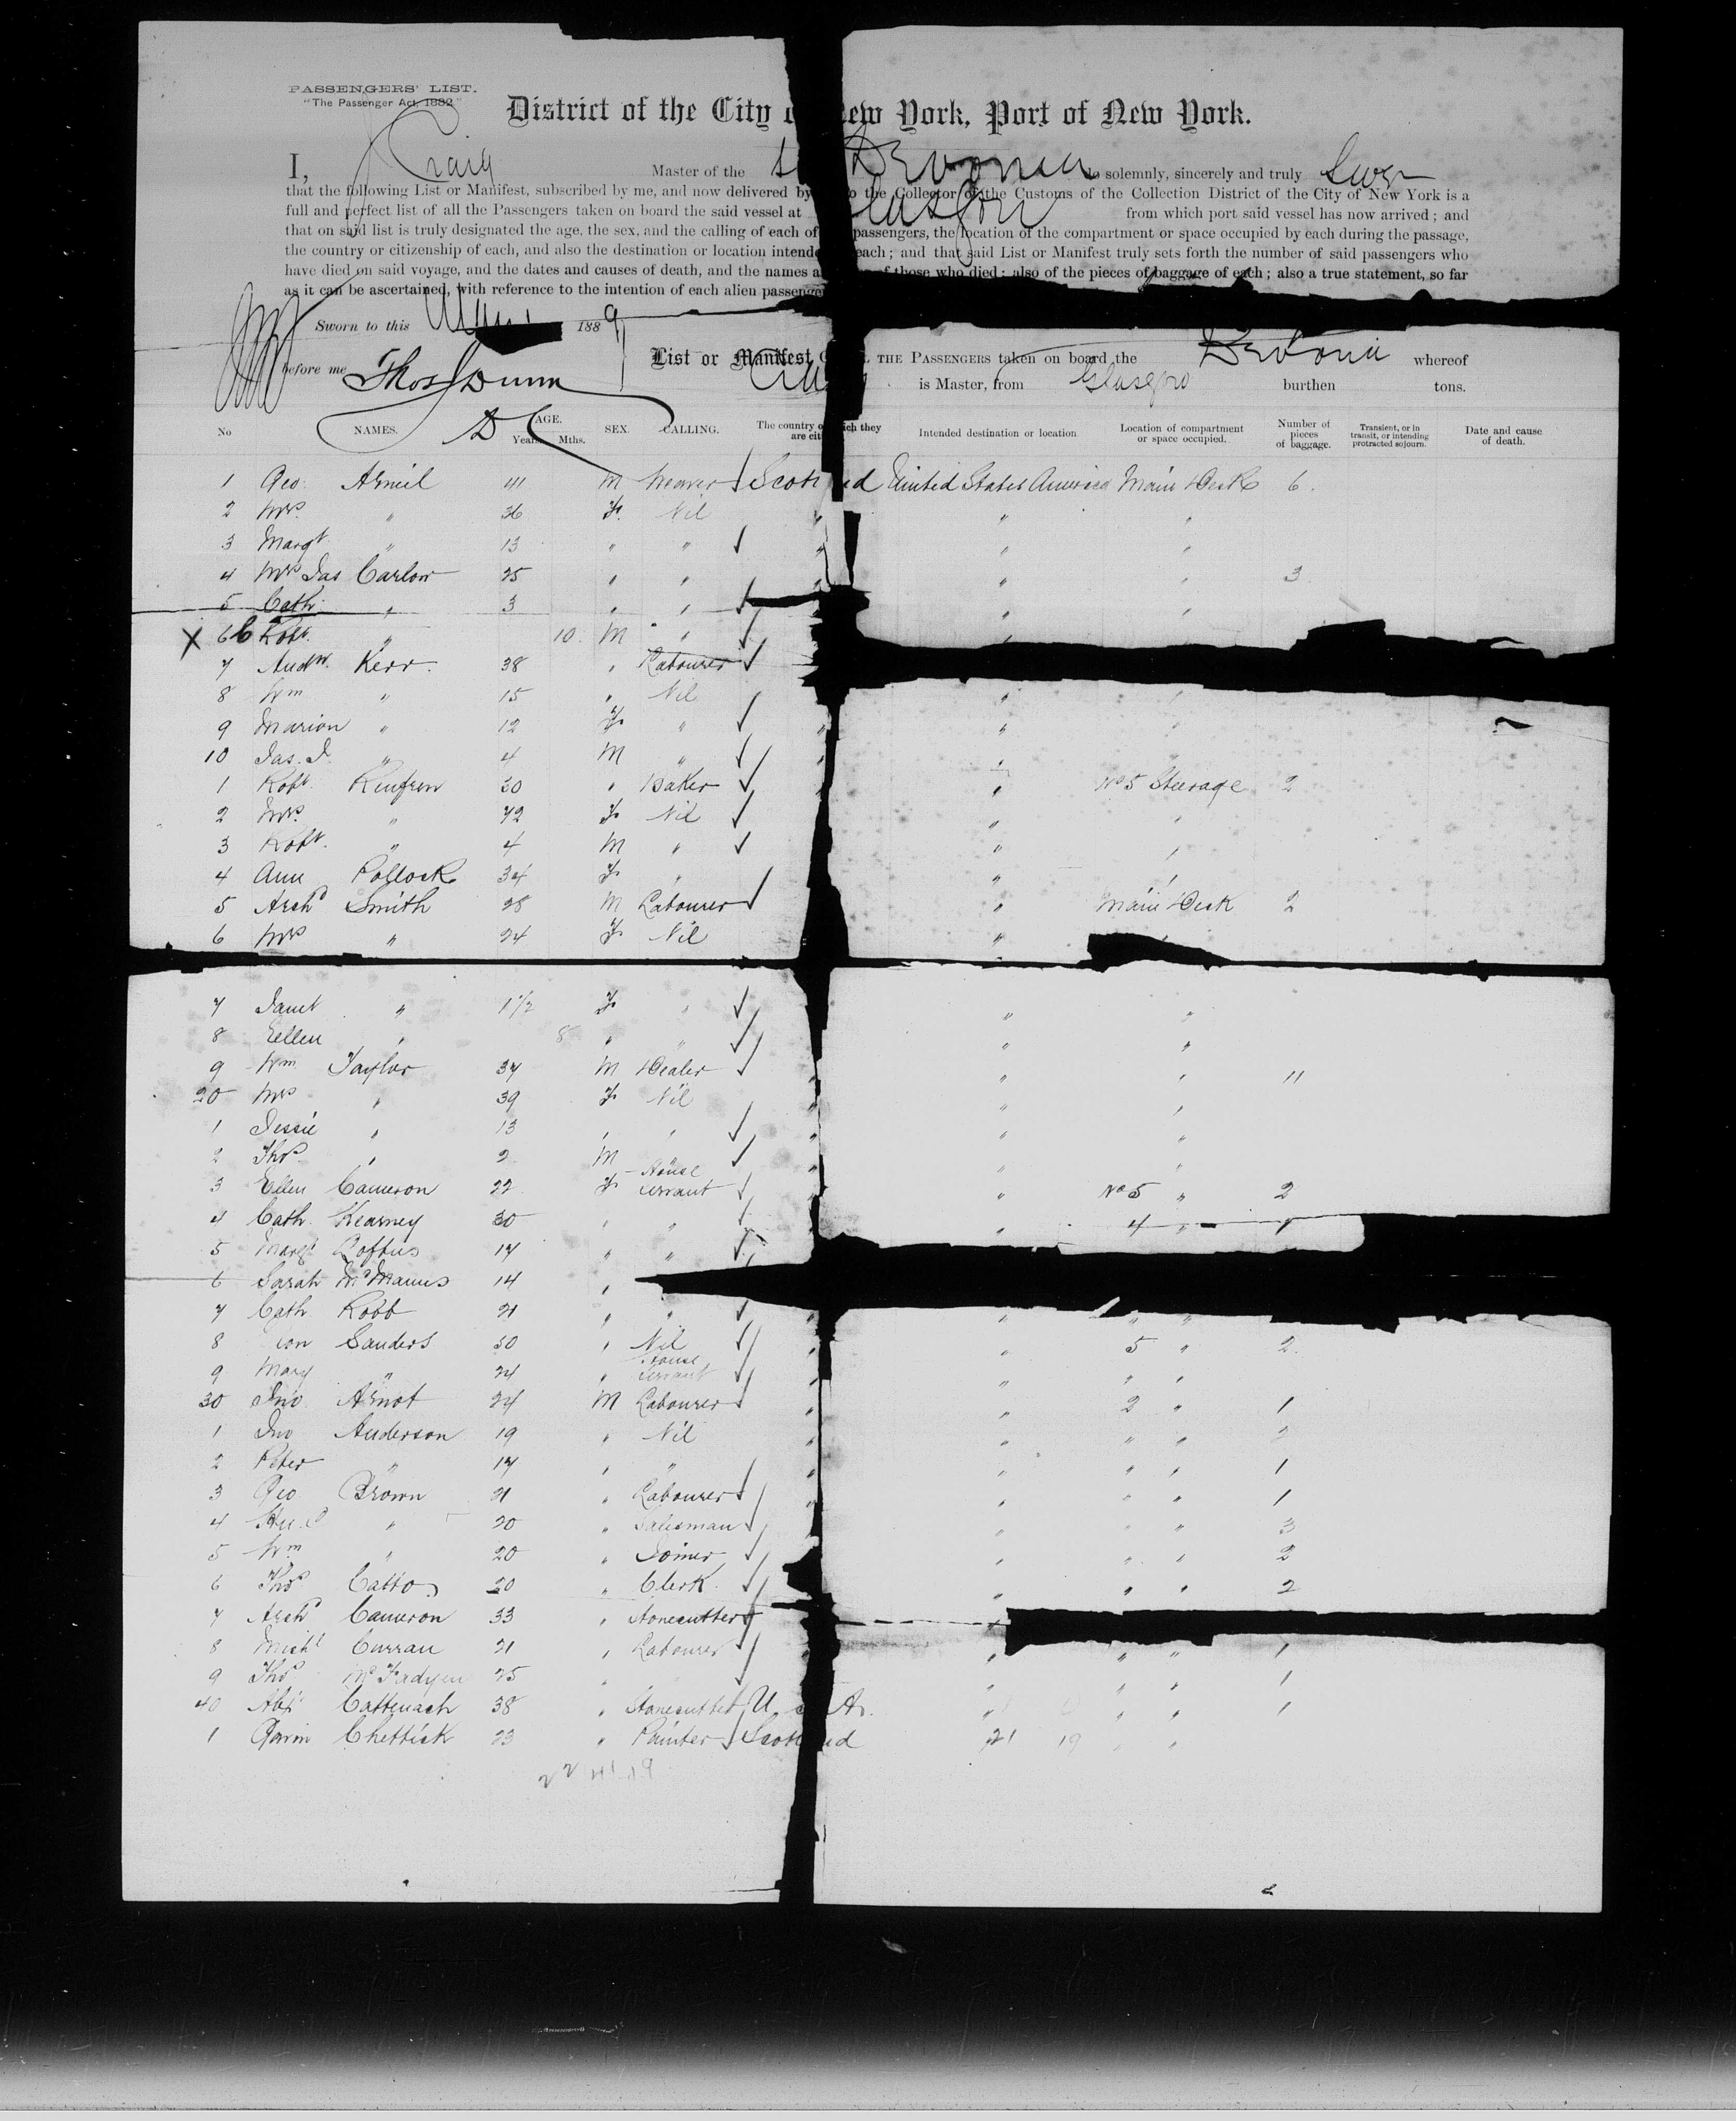 PASSENGERS' LIST.
"The Passenger Act, 1882"
District of the City o ew York, Port of New York.
I, J Craig Master of the SS Devonia do solemnly, sincerely and truly Swear
that the following List or Manifest, subscribed by me, and now delivered by to the Collector of the Customs of the Collection District of the City of New York is a
full and perfect list of all the Passengers taken on board the said vessel at Glasgow from which port said vessel has now arrived; and
that on said list is truly designated the age, the sex, and the calling of each of passengers, the location of the compartment or space occupied by each during the passage,
the country or citizenship of each, and also the destination or location intende each; and that said List or Manifest truly sets forth the number of said passengers who
have died on said voyage, and the dates and causes of death, and the names a of those who died; also of the pieces of baggage of each; also a true statement, so far
as it can be ascertained, with reference to the intention of each alien passenge
Sworn to this 1889
before me Thos Dunn List or Manifest THE PASSENGERS taken on board the Devonia whereof
Craig is Master, from Glasgow burthen tons.
No NAMES. AGE. Years. Mths. SEX. CALLING. The country o hich they are cit Intended destination or location Location of compartment or space occupied. Number of pieces of baggage. Transient, or in transit, or intending protracted sojourn. Date and cause of death.
1 Geo. Arneil 41 M Weaver Scotland United States America Main Deck 6.
2 Mrs. " 36 F. Nil " " "
3 Margt. " 13 " " " " "
4 Mrs Jas Carlow 25 " " " " " 3
5 Cath. " 3 " " " " "
X 6 Robt. " 10. M " " "
7 Andw. Kerr. 38 " Labourer
8 Wm " 15 " Nil " "
9 Marion " 12 F " " " "
10 Jas. J. " 4 M " " "
1 Robt. Renfrew 30 " Baker " No 5 Steerage 2
2 Mrs. " 42 F Nil " "
3 Robt. " 4 M " " "
4 Ann Pollock 34 F " " "
5 Archd Smith 28 M Labourer " Main Deck 2
6 Mrs " 24 F Nil " "
7 Janet " 1 1/2 F " " "
8 Ellen " 8 " " " "
9 Wm Taylor 37 M Dealer " " " 11
20 Mrs " 39 F Nil " " "
1 Jessie " 13 " " " " "
2 Thos " 2 M " " " "
3 Ellen Cameron 22 F House servant " " No 5 " 2
4 Cath. Kearney 30 " " " " 4 " 1
5 Margt Loftus 17 " " "
6 Sarah McManus 14 "
7 Cath Robb 21 " " " " " "
8 ion Sanders 30 " Nil " " 5 " 2
9 Mary " 24 " House servant " " " "
30 Jno. Arnot 24 M Labourer " " 2 " 1
1 Jno Anderson 19 " Nil " " " " 2
2 Peter " 17 " " " " " " 1
3 Geo Brown 21 " Labourer " " " " 1
4 " 20 " Salesman " " " " 3
5 Wm " 20 " Joiner " " " " 2
6 Thos Catto 20 " Clerk. " " " " 2
7 Archd Cameron 33 " Stonecutter
8 Michl Curran 21 " Labourer " " " " 1
9 Thos McFadyen 25 " " " " " 1
40 Alexr Cattenach 38 " Stonecutter U. S. A. " " " 1
1 Gavin Chettick 23 " Painter Scotland 21 19 " "
22 41 19